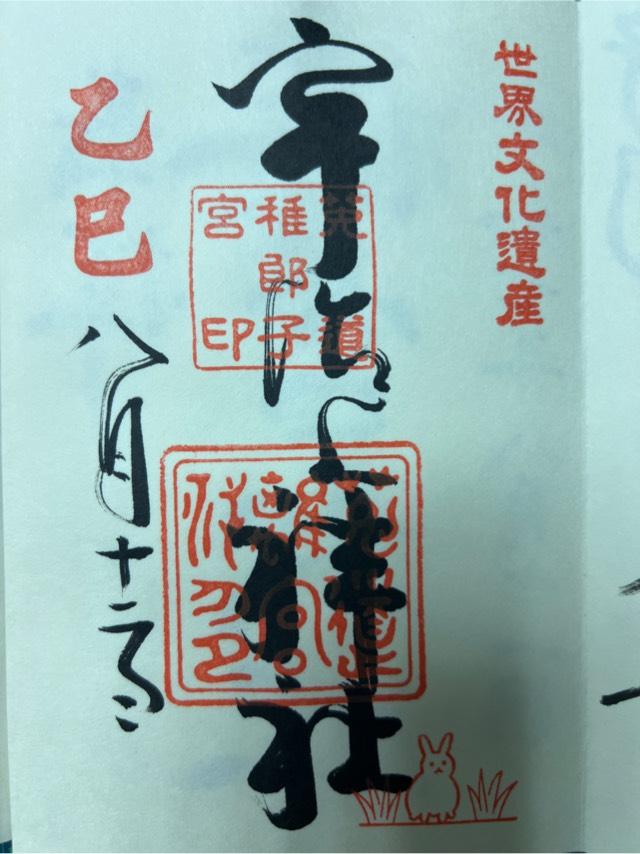 世界文化遺産
宇治上神社
菟道
稚郎子
宮印
乙巳
八月十二日